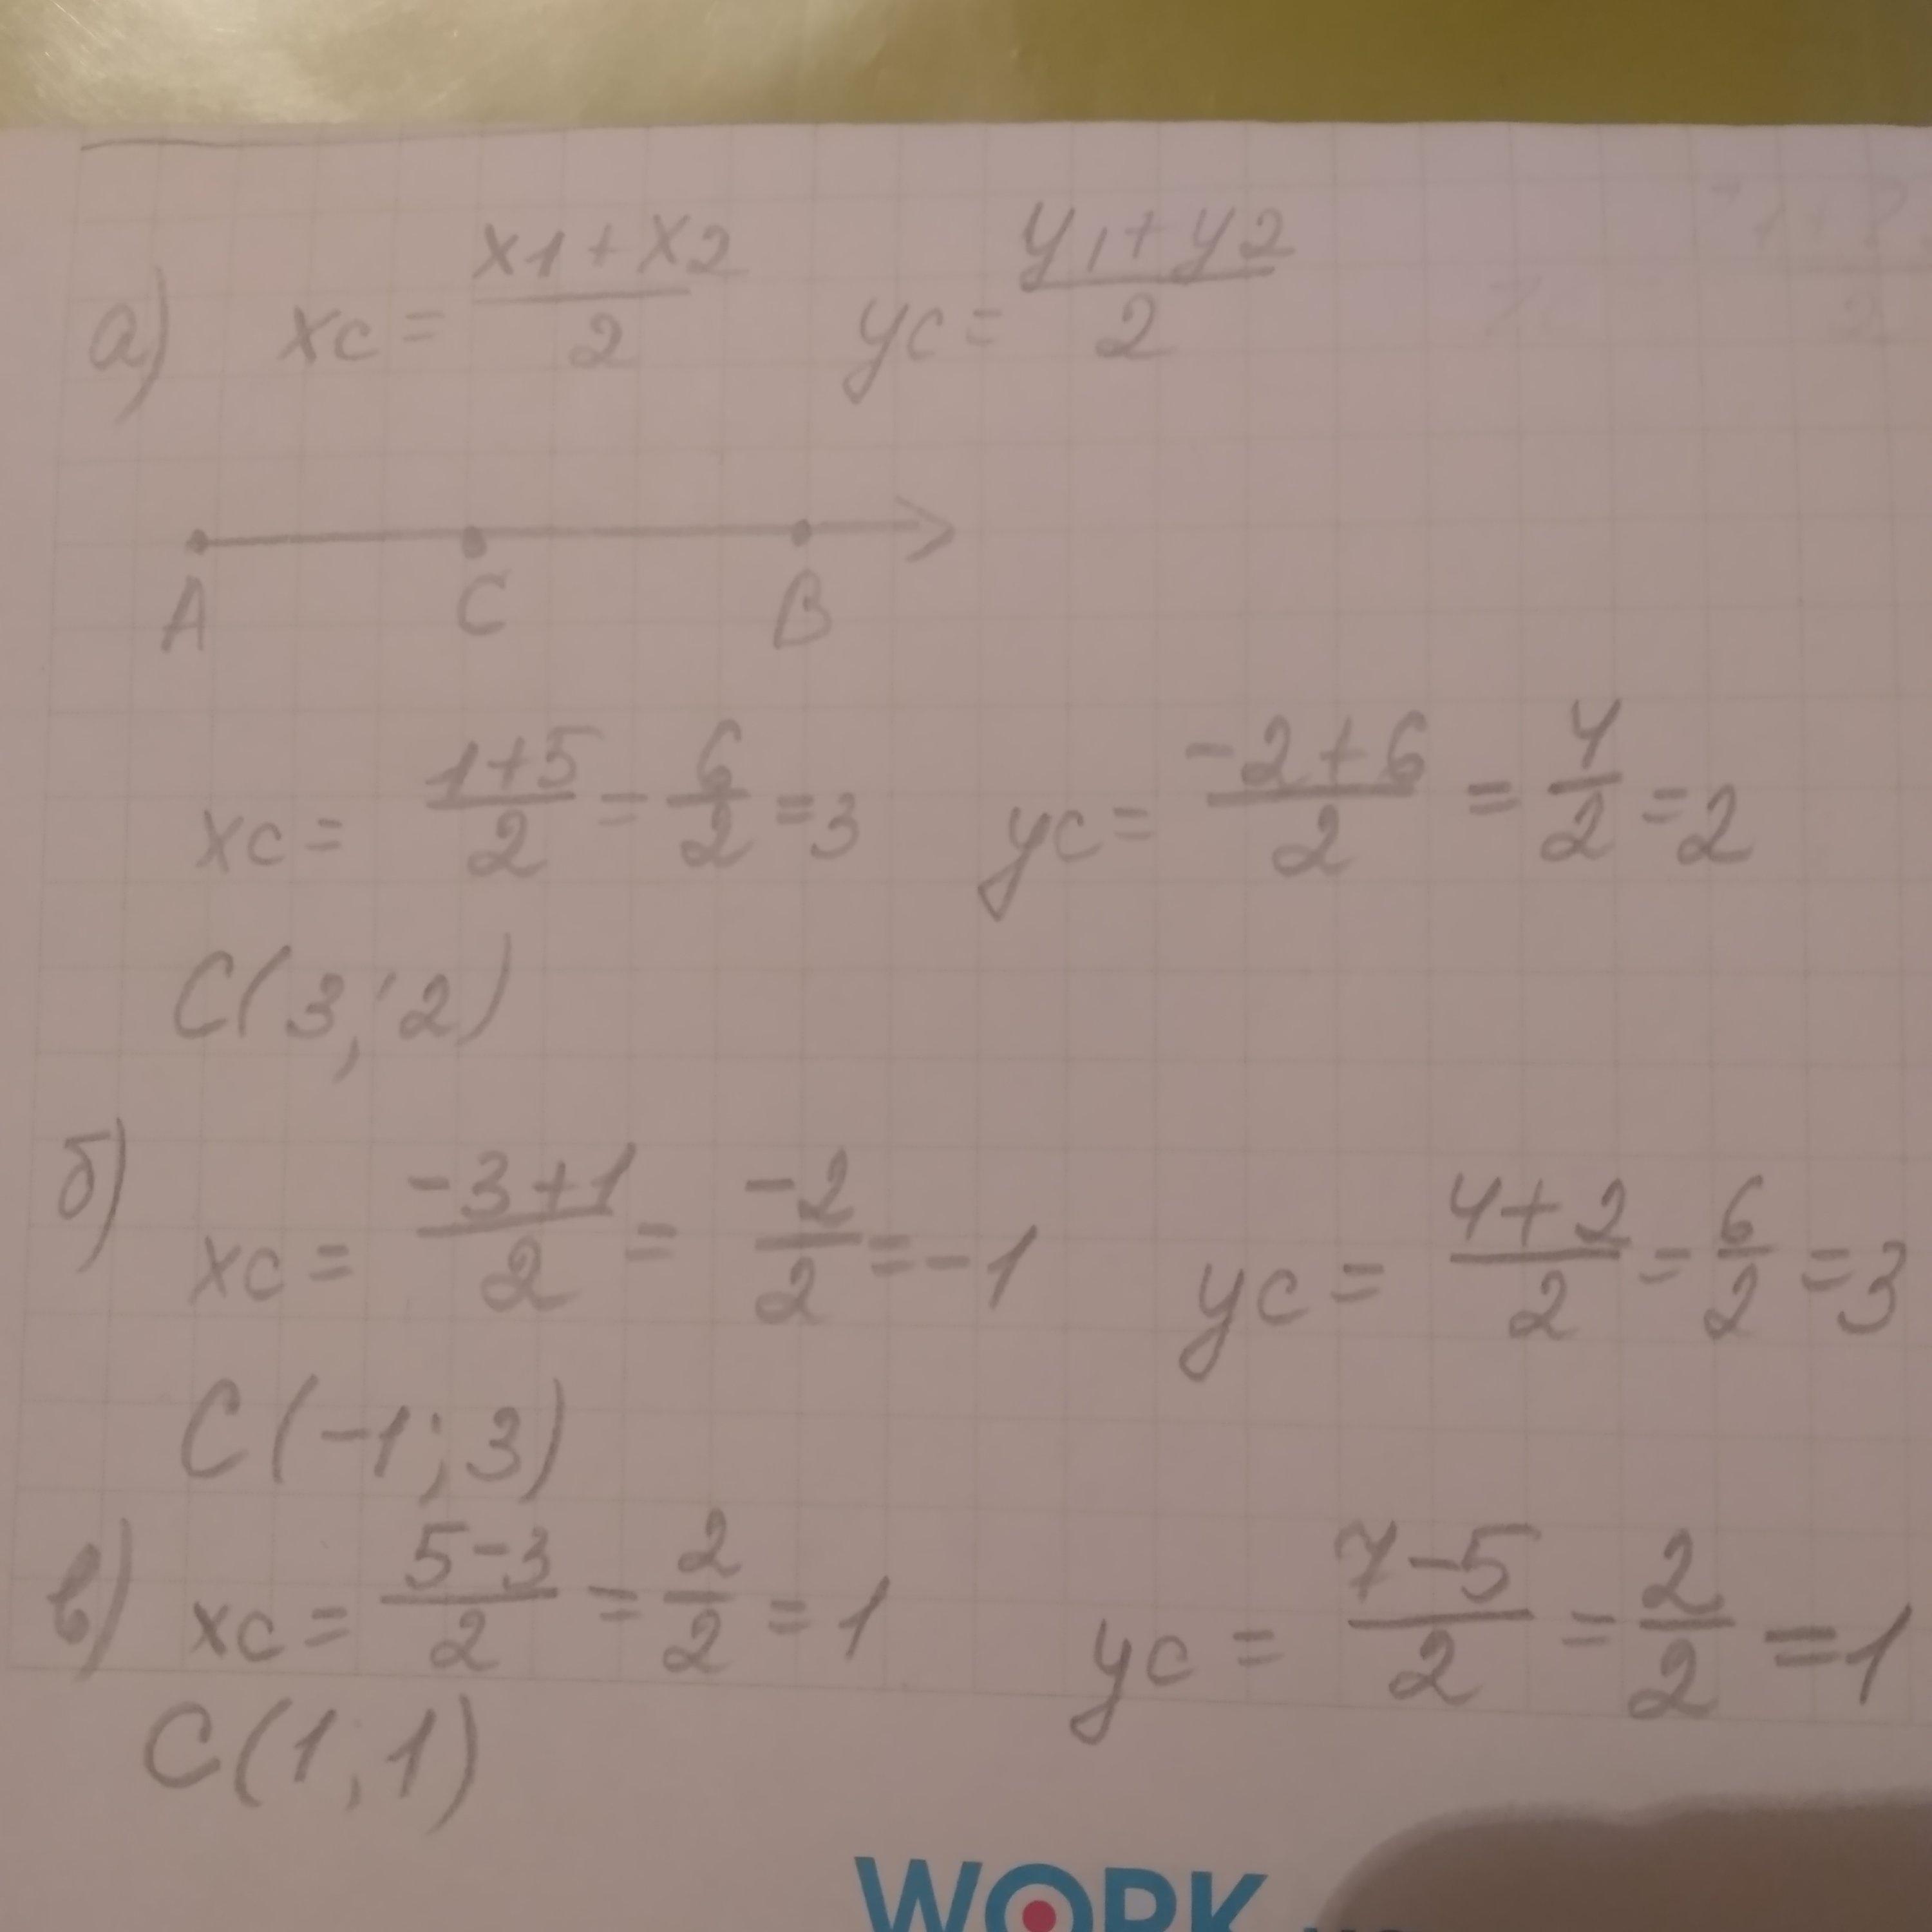 а) xc = x1+x2/2 yc = y1+y2/2
A C B
xc = 1+5/2 = 6/2 = 3 yc = -2+6/2 = 4/2 = 2
C(3; 2)
б) xc = -3+1/2 = -2/2 = -1 yc = 4+2/2 = 6/2 = 3
C(-1; 3)
в) xc = 5-3/2 = 2/2 = 1 yc = 7-5/2 = 2/2 = 1
C(1; 1)
WORK